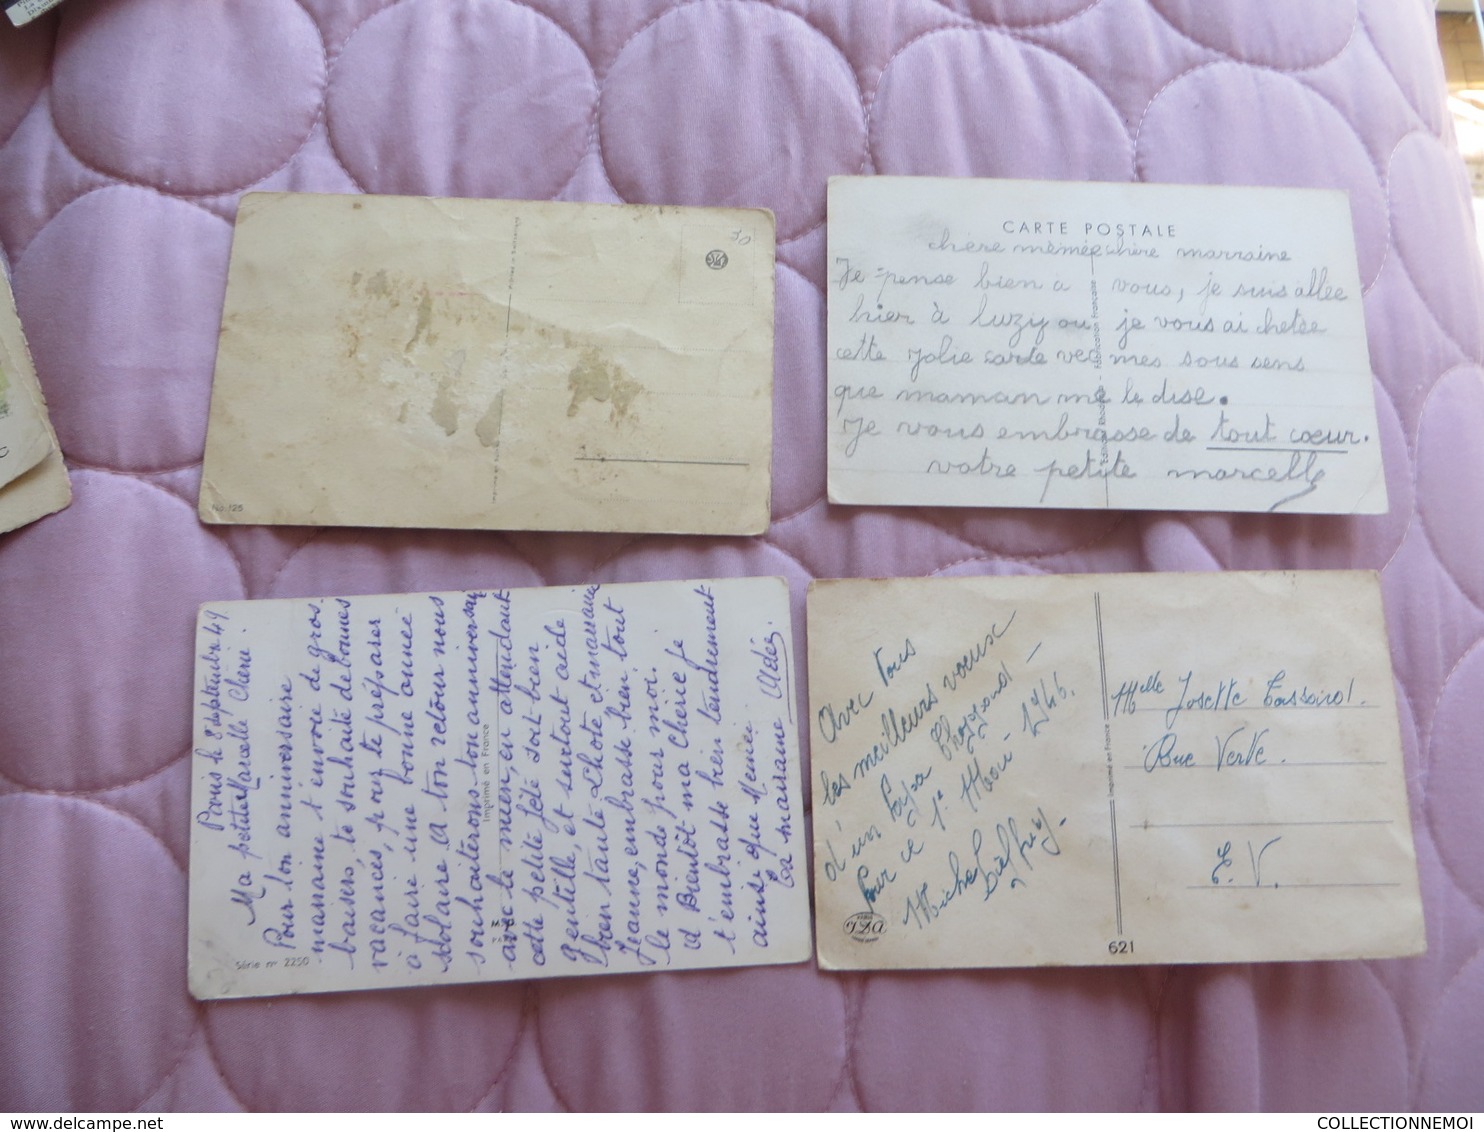 30
No. 125
CARTE POSTALE
chère mémée chère marraine
Je pense bien à vous, je suis allée
hier à luzy ou je vous ai chetée
cette Jolie carde vec mes sous sens
que maman me le dise.
Je vous embrasse de tout cœur.
votre petite marcelle
Paris le 8 septembre 49
Ma petite Marcelle Chérie
Pour ton anniversaire
marraine t'envoie de gros
baisers, te souhaite de bonnes
vacances, pour te préparer
à faire une bonne année
scolaire A ton retour nous
souhaiterons ton anniversaire
avec le mien, en attendant
cette petite fête sort bien
gentille, et surtout aide
bien tante Lhote et marraine
Jeanne, embrasse bien tout
le monde pour moi.
A Bientôt ma Chérie Je
t'embrasse bien tendrement
ainsi que Mémée
Ta maraine
Imprimé en France
Série nº 2250
Avec tous
les meilleurs vœux
d'un Papa
Pour ce 1e Mai 1946.
Michel
Melle Josette
Rue Verte.
E. V.
Imprimé en France
PARIS
621
C
COLLECTIONNEMOI